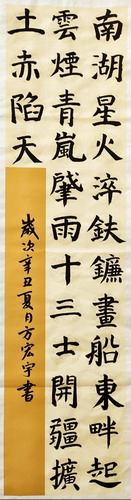 南湖星火淬鈇鐮畫船東畔起
雲煙青嵐肇雨十三士開疆擴
土赤陷天
歲次辛丑夏月方宏宇書